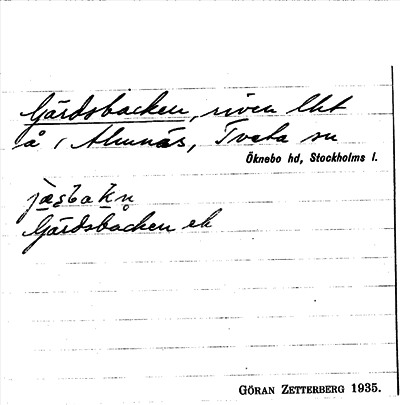 Gärdsbacken, riven lht
å 1 Almnäs, Tveta sn
Öknebo hd, Stockholms l.
Gärdsbacken ek
GÖRAN ZETTERBERG 1935.